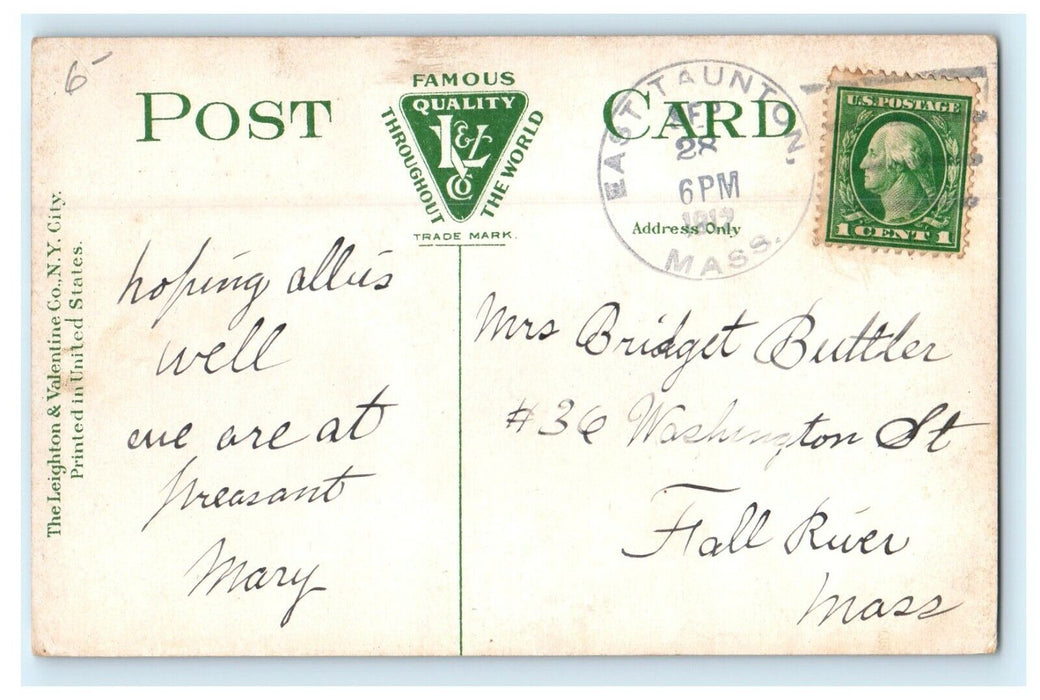 6-
POST CARD
FAMOUS
QUALITY
L&V
Co
THROUGHOUT THE WORLD
TRADE MARK.
EAST TAUNTON,
28
6 PM
1912
MASS.
Address Only
U.S. POSTAGE
1 CENT 1
The Leighton & Valentine Co., N.Y. City.
Printed in United States.
hoping all is
well
we are at
preasant
Mary
Mrs Bridget Buttler
#36 Washington St
Fall River
Mass